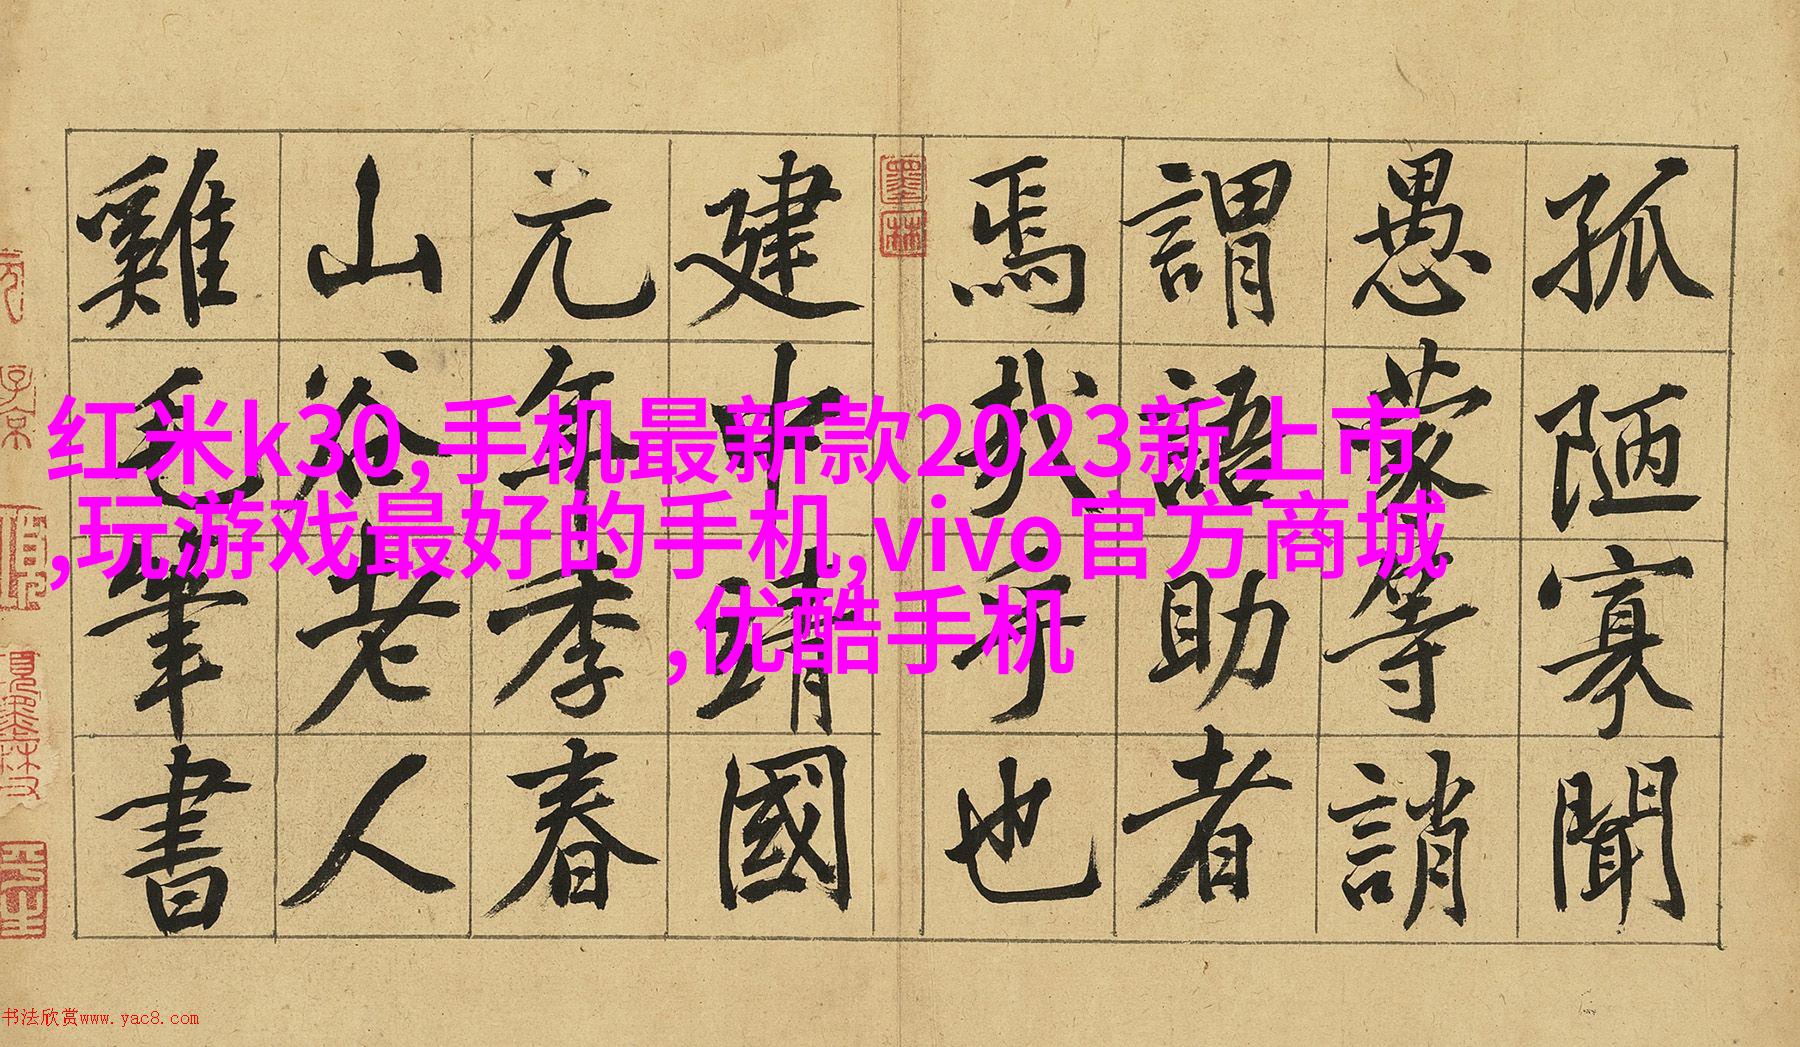 孤陋寡聞
愚蒙等誚
謂語助者
焉哉乎也
墨林
建中靖國
元年季春
山谷老人
雞毛筆書
红米k30,手机最新款2023新上市
,玩游戏最好的手机,vivo官方商城
,优酷手机
书法欣赏www.yac8.com